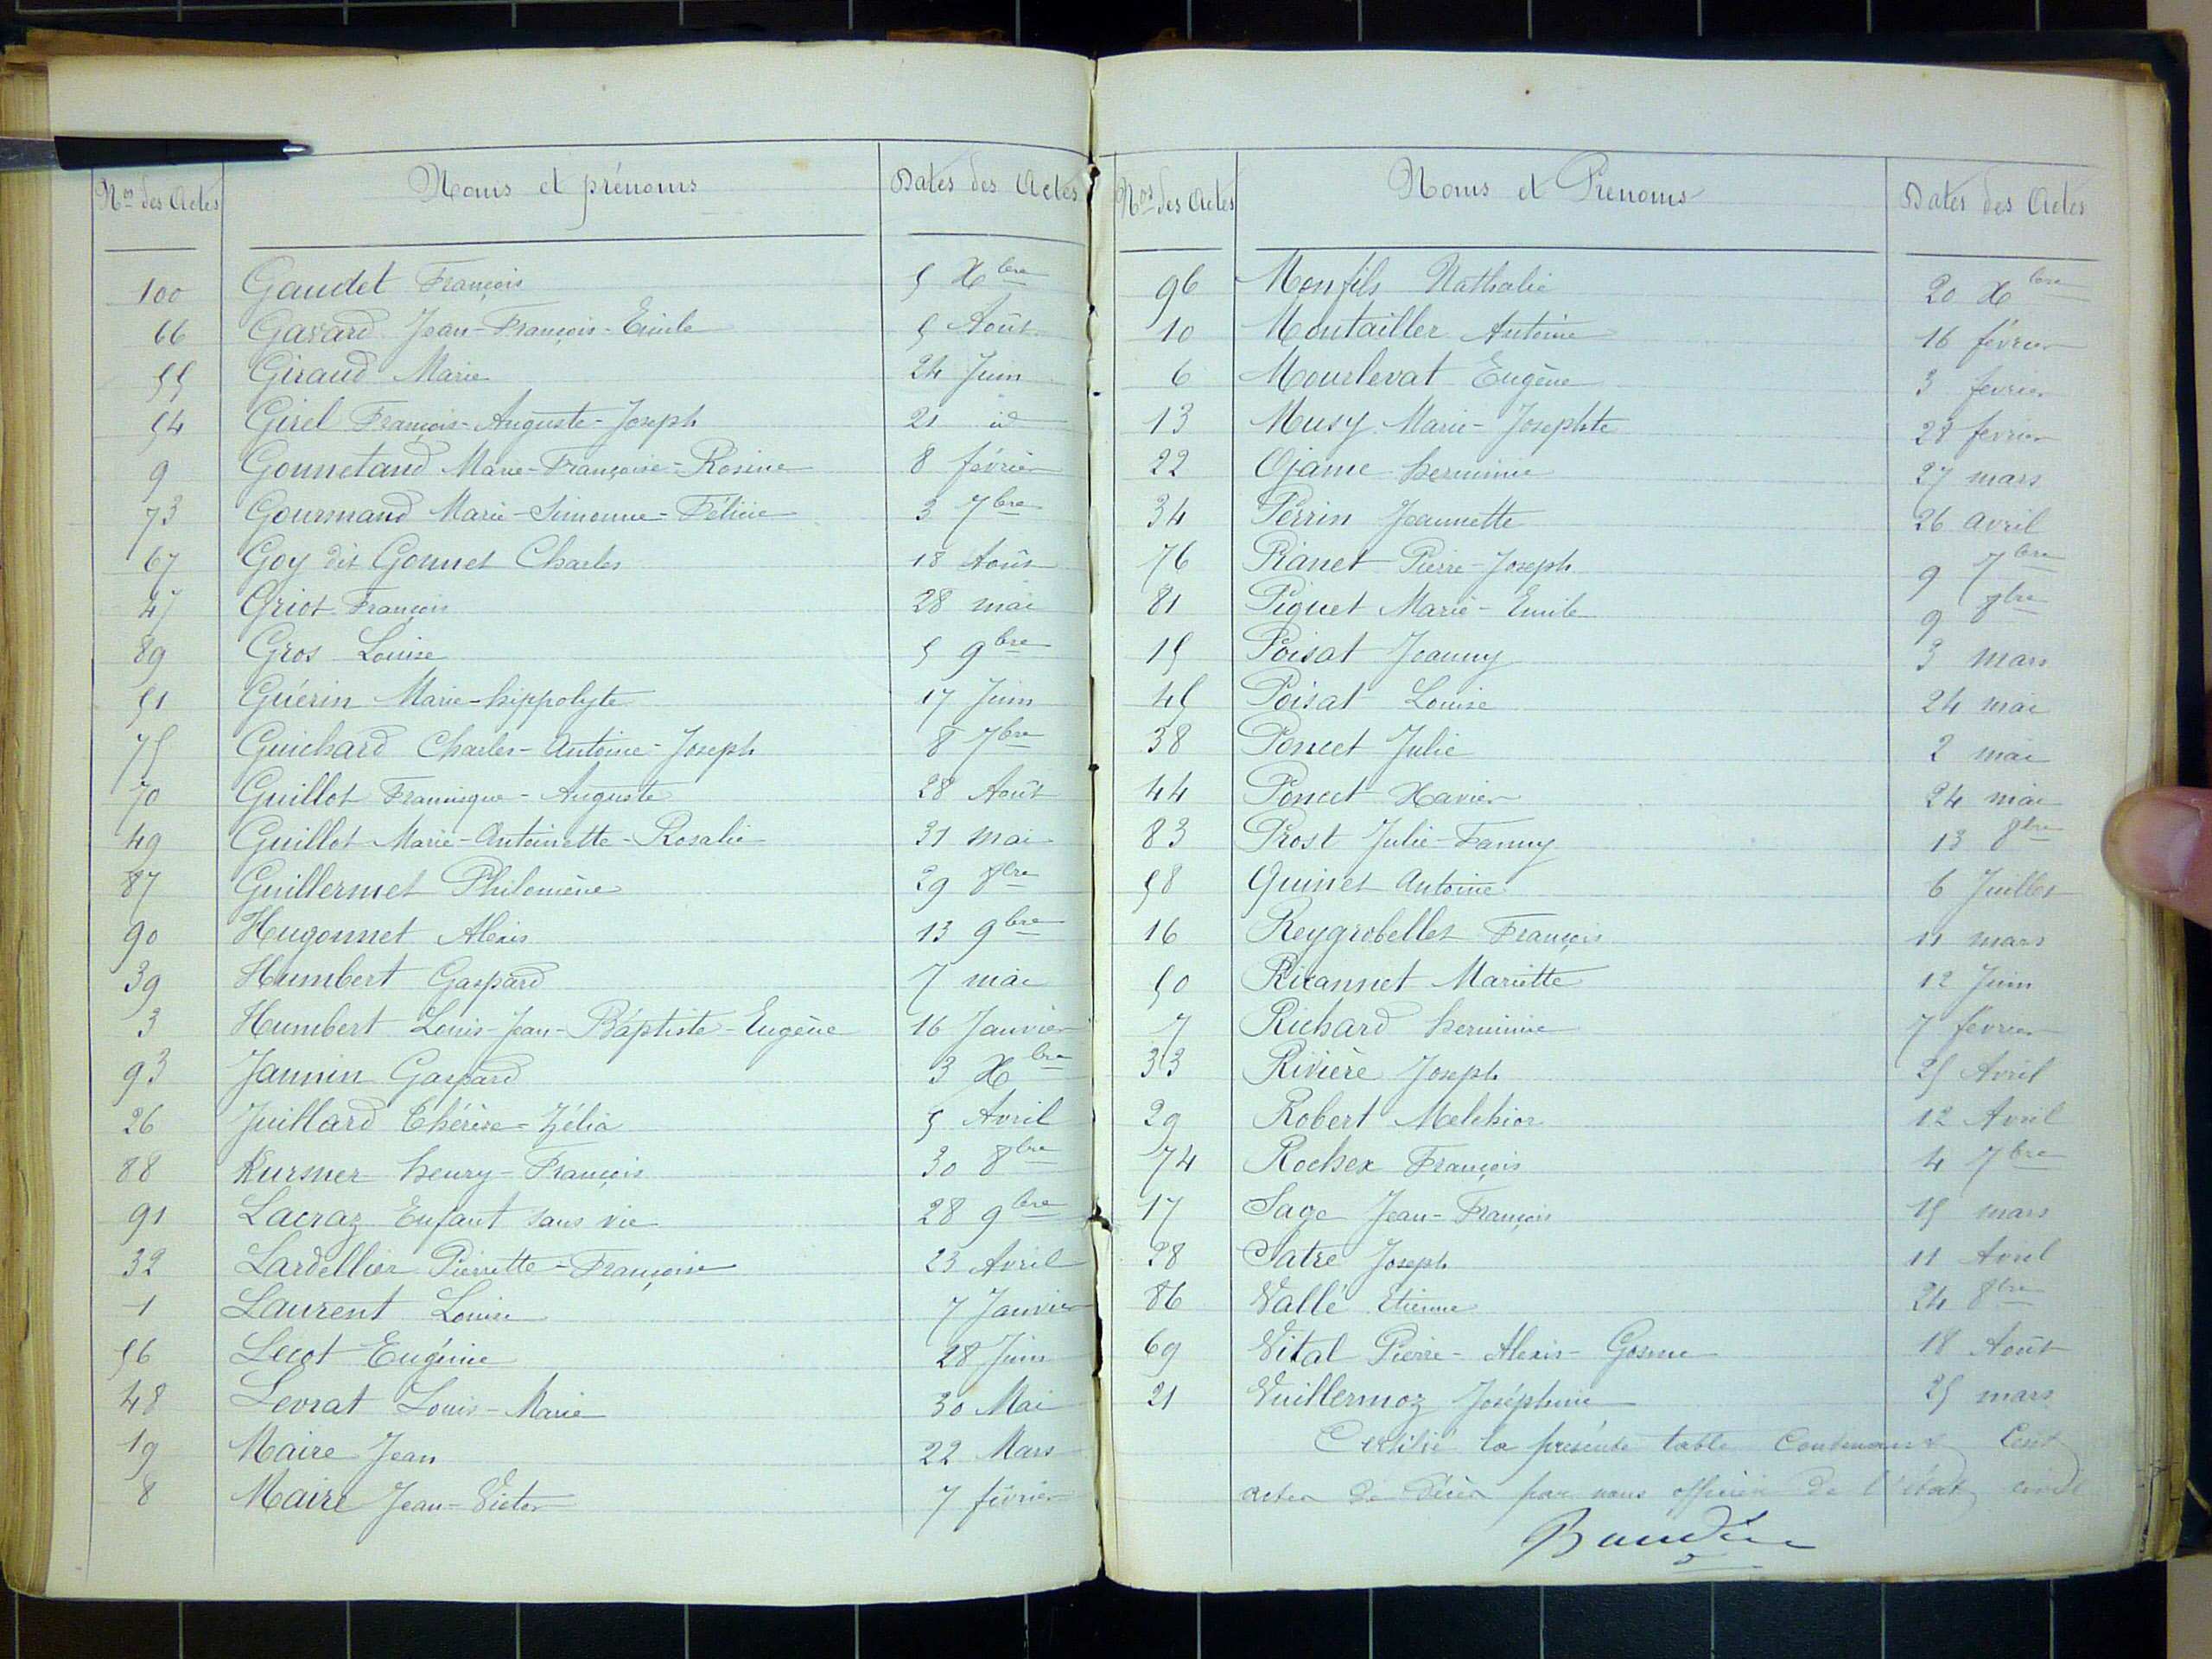 Nos des Actes Noms et prénoms Dates des Actes
100 Gaudet François 5 Xbre
66 Gavard Jean-François-Emile 5 Août
55 Giraud Marie 24 Juin
54 Girel François-Auguste-Joseph 21 id
9 Gonnetand Marie-Françoise-Rosine 8 février
73 Gourmand Marie-Simonne-Félicie 3 7bre
67 Goy dit Gonnet Charles 18 Août
47 Griot François 28 mai
89 Gros Louise 5 9bre
51 Guérin Marie-hippolyte 17 Juin
75 Guichard Charles-Antoine-Joseph 8 7bre
70 Guillot Francisque-Auguste 28 Août
49 Guillot Marie-Antoinette-Rosalie 31 mai
87 Guillermet Philomène 29 8bre
90 Hugonnet Alexis 13 9bre
39 Humbert Gaspard 7 mai
3 Humbert Louis-Jean-Baptiste-Eugène 16 Janvier
93 Jannin Gaspard 3 Xbre
26 Juillard Thérèse-Zélia 5 Avril
88 Kursner henry-François 30 8bre
91 Lacraz Enfant sans vie 28 9bre
32 Lardellier Pierrette-Françoise 23 Avril
1 Laurent Louise 7 Janvier
56 Lecot Eugénie 28 Juin
48 Levrat Louis-Marie 30 Mai
19 Maire Jean 22 Mars
8 Maire Jean-Victor 7 février
Nos des Actes Noms et Prenoms Dates des Actes
96 Monfils Nathalie 20 Xbre
10 Montailler Antoine 16 février
6 Mourlevat Eugène 3 fevrier
13 Musy Marie-Josephte 28 fevrier
22 Ojame herminie 27 mars
34 Perrin Jeannette 26 avril
76 Pianet Pierre-Joseph 9 7bre
81 Piquet Marie-Emile 9 8bre
15 Poisat Joanny 3 mars
45 Poisat Louise 24 mai
38 Poncet Julie 2 mai
44 Poncet Xavier 24 mai
83 Prost Julie-Fanny 13 8bre
58 Quinet Antoine 6 Juillet
16 Reygrobellet François 11 mars
50 Ricannet Mariette 12 Juin
7 Richard herminie 7 février
33 Rivière Joseph 25 Avril
29 Robert Melchior 12 Avril
74 Rochex François 4 7bre
17 Sage Jean-François 15 mars
28 Satre Joseph 11 Avril
86 Vallé Etienne 24 8bre
69 Vital Pierre-Alexis-Gosme 18 Août
21 Vuillermoz Joséphine 25 mars
Certifié la présente table contenant Cent
actes de décès par nous officier de l'état civil
Baudin